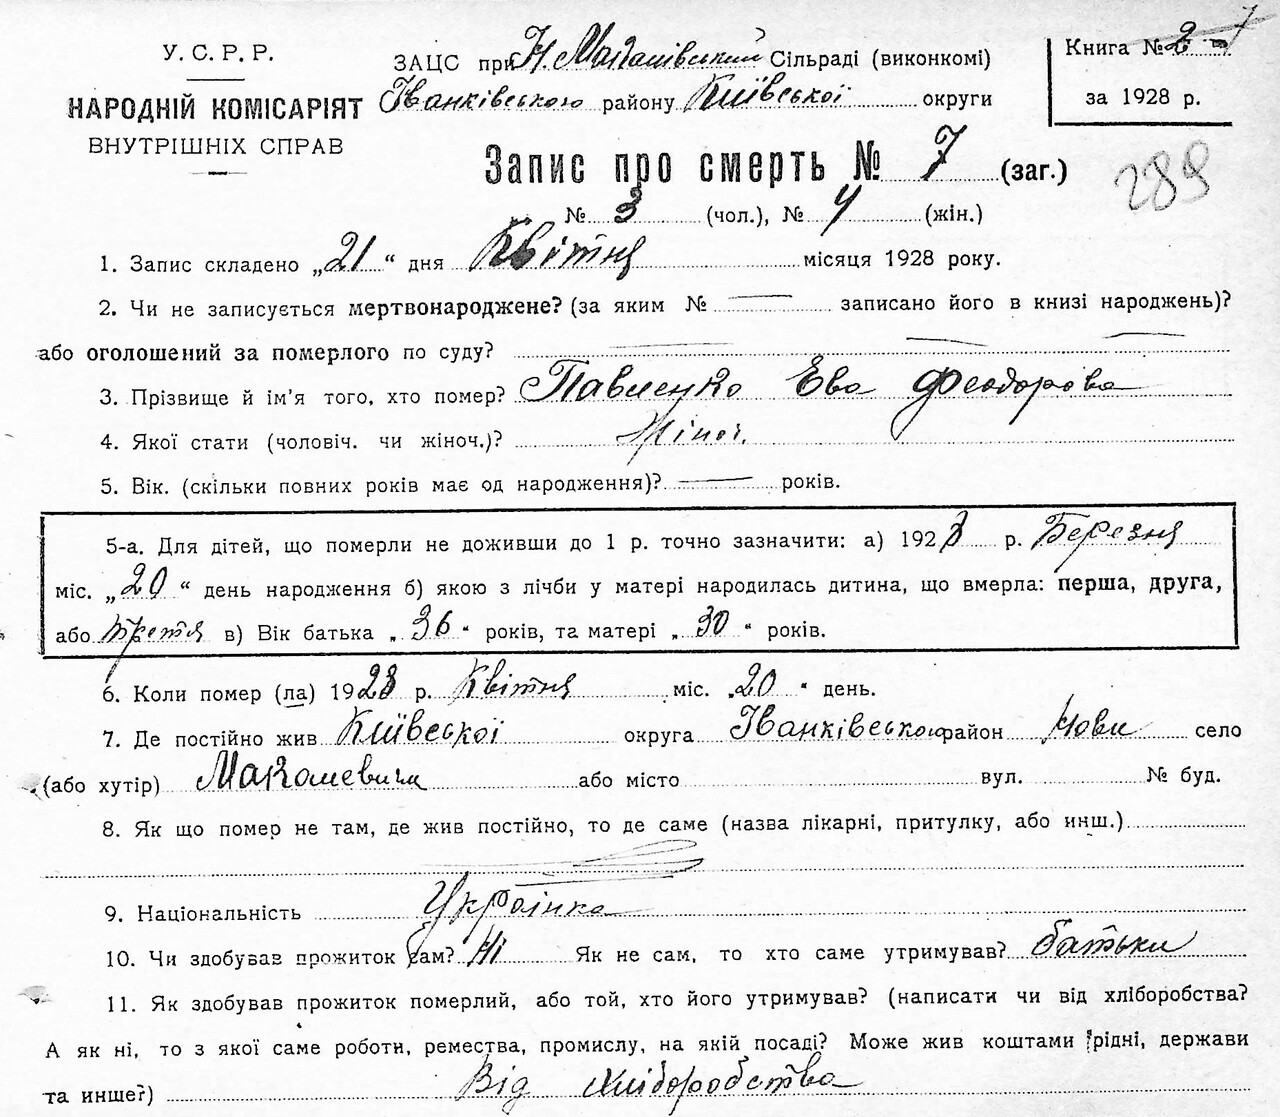 У. С. Р. Р.
НАРОДНІЙ КОМІСАРІЯТ
ВНУТРІШНІХ СПРАВ
ЗАЦС при Н. Макалівський Сільраді (виконкомі)
Іванківською району Київської округи
Книга № 2
за 1928 р.
Запис про смерть № 7 (заг.)
289
№ 3 (чол.), № 4 (жін.)
1. Запис складено „21“ дня Квітня місяця 1928 року.
2. Чи не записується мертвонароджене? (за яким № — записано його в книзі народжень)?
або оголошений за померлого по суду?
3. Прізвище й ім'я того, хто помер? Павленко Ева Феодорова
4. Якої стати (чоловіч. чи жіноч.)? Жіноч.
5. Вік. (скільки повних років має од народження)? — років.
5-а. Для дітей, що померли не доживши до 1 р. точно зазначити: а) 1928 р. Березня
міс. „20“ день народження б) якою з лічби у матері народилась дитина, що вмерла: перша, друга,
або третя в) Вік батька „36“ років, та матері „30“ років.
6. Коли помер (ла) 1928 р. Квітня міс. „20“ день.
7. Де постійно жив Київської округа Іванківською район Нови село
(або хутір) Макалевичи або місто вул. № буд.
8. Як що помер не там, де жив постійно, то де саме (назва лікарні, притулку, або инш.)
9. Національність Українка
10. Чи здобував прожиток сам? Ні Як не сам, то хто саме утримував? батьки
11. Як здобував прожиток померлий, або той, хто його утримував? (написати чи від хліборобства?
А як ні, то з якої саме роботи, ремества, промислу, на якій посаді? Може жив коштами рідні, держави
та инше?) Від хліборобства